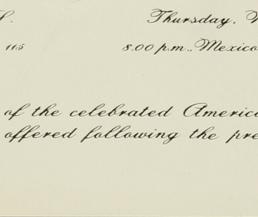 Thursday,
115 8.00 p.m., Mexico
of the celebrated America
offered following the pre